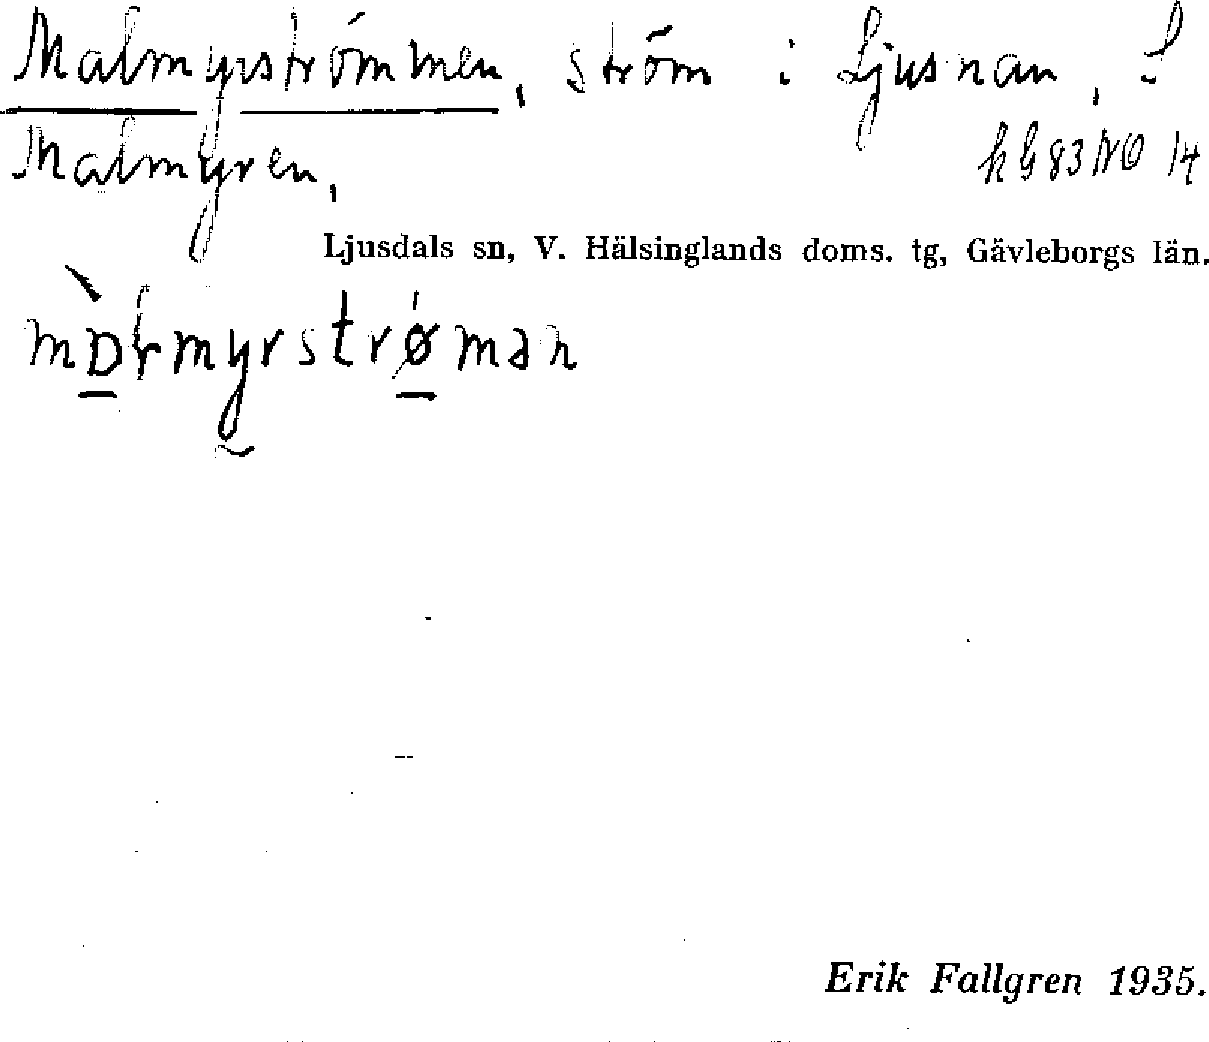 Malmyrströmmen, ström i Ljusnan, S
Malmyren,
hG83NO 14
Ljusdals sn, V. Hälsinglands doms. tg, Gävleborgs län.
Erik Fallgren 1935.